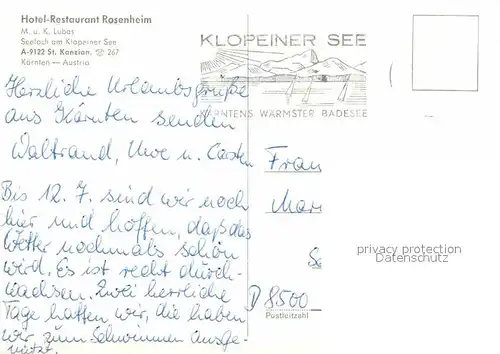 Hotel-Restaurant Rosenheim
M. u. K. Lubas
Seelach am Klopeiner See
A-9122 St. Kanzian, ☏ 267
Kärnten — Austria
KLOPEINER SEE
KÄRNTENS WÄRMSTER BADESEE
Herzliche Urlaubsgrüße
aus Kärnten senden
Waltraud, Uwe u. Carsten
Bis 12. 7. sind wir noch
hier und hoffen, daß das
Wetter nochmals schön
wird. Es ist recht durch-
wachsen. Zwei herrliche
Tage hatten wir, die haben
wir zum Schwimmen ausge-
nützt.
D 8500
Postleitzahl
privacy protection
Datenschutz